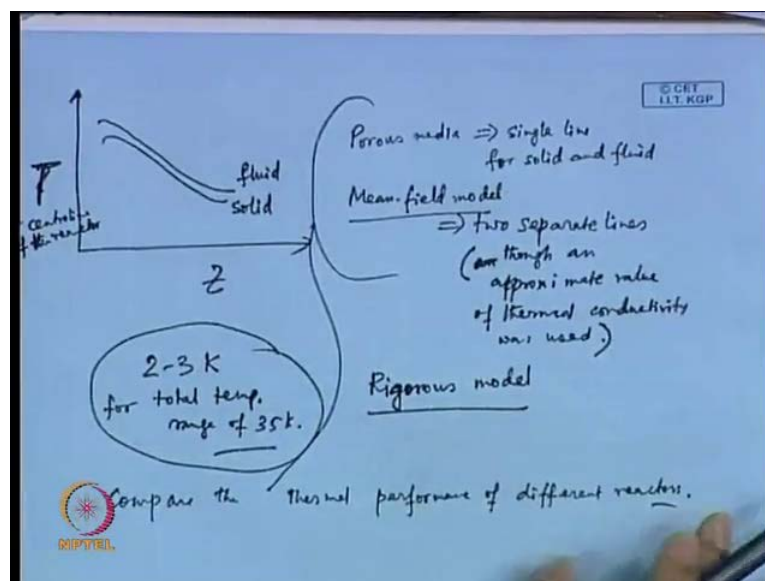 © CET
I.I.T. KGP
T
centre
of the reactor
fluid
solid
Z
Porous media ⇒ single line
for solid and fluid
Mean-field model
⇒ two separate lines
(though an
approximate value
of thermal conductivity
was used.)
2-3 K
for total temp.
range of 35K.
Rigorous model
Compare the thermal performance of different reactors.
NPTEL